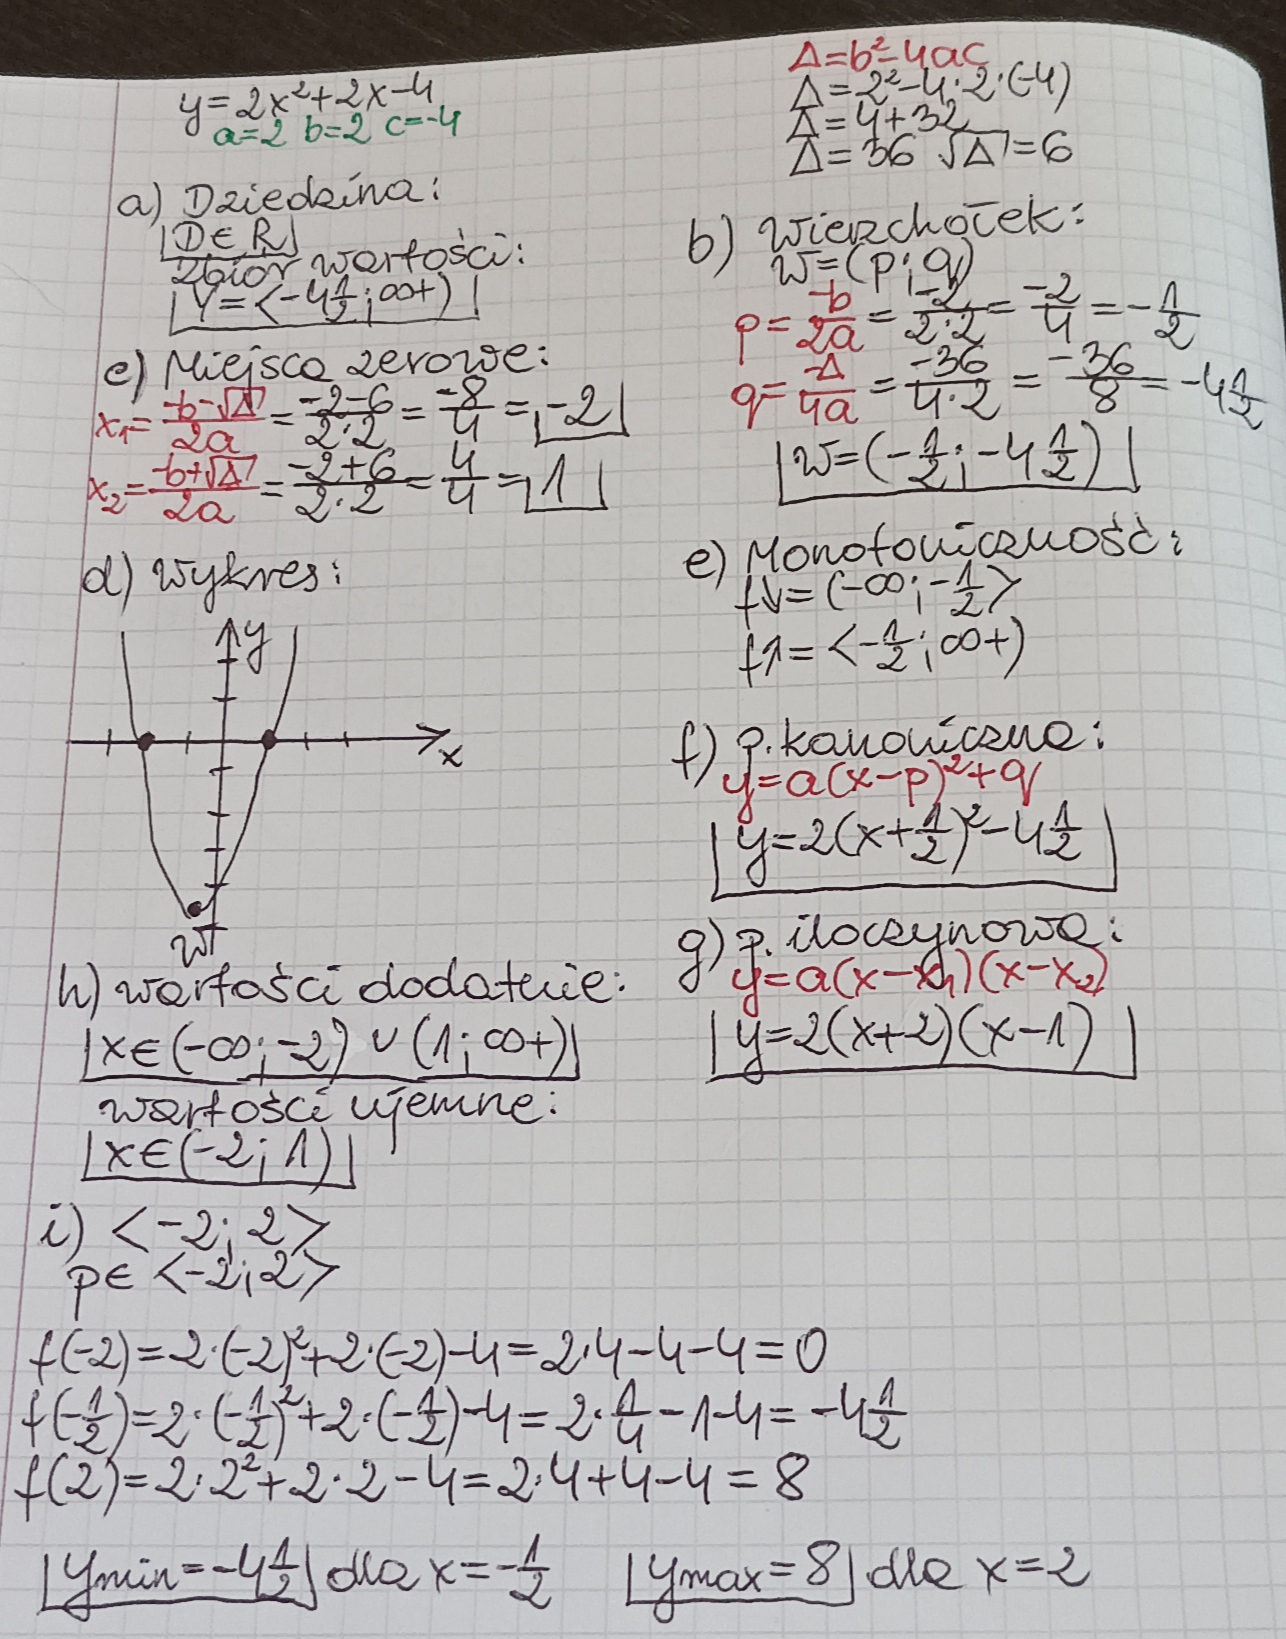 y=2x²+2x-4
a=2 b=2 c=-4
Δ=b²-4ac
Δ=2²-4·2·(-4)
Δ=4+32
Δ=36 √Δ=6
a) Dziedzina:
D∈R
zbiór wartości:
Y=<-4 1/2; ∞+)
b) Wierzchołek:
W=(p; q)
p=-b/2a=-2/2·2=-2/4=-1/2
q=-Δ/4a=-36/4·2=-36/8=-4 1/2
W=(-1/2; -4 1/2)
c) Miejsca zerowe:
x₁=-b-√Δ/2a=-2-6/2·2=-8/4=-2
x₂=-b+√Δ/2a=-2+6/2·2=4/4=1
d) Wykres:
y
x
W
e) Monotoniczność:
f↓=(-∞; -1/2>
f↑=<-1/2; ∞+)
f) p. kanoniczna:
y=a(x-p)²+q
y=2(x+1/2)²-4 1/2
g) p. iloczynowa:
y=a(x-x₁)(x-x₂)
y=2(x+2)(x-1)
h) wartości dodatnie:
x∈(-∞; -2) ∪ (1; ∞+)
wartości ujemne:
x∈(-2; 1)
i) <-2; 2>
p∈ <-2; 2>
f(-2)=2·(-2)²+2·(-2)-4=2·4-4-4=0
f(-1/2)=2·(-1/2)²+2·(-1/2)-4=2·1/4-1-4=-4 1/2
f(2)=2·2²+2·2-4=2·4+4-4=8
ymin=-4 1/2 dla x=-1/2 ymax=8 dla x=2